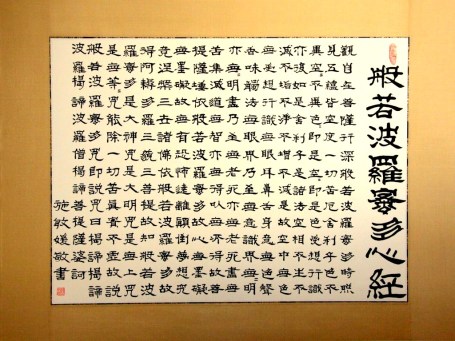 般若波羅蜜多心經
觀自在菩薩行深般若波羅蜜多時照
見五蘊皆空度一切苦厄舍利子色不
異空空不異色色即是空空即是色受想行識
亦復如是舍利子是諸法空相不生不
滅不垢不淨不增不減是故空中無色
無受想行識無眼耳鼻舌身意無色聲
香味觸法無眼界乃至無意識界無無明
亦無無明盡乃至無老死亦無老死盡無
苦集滅道無智亦無得以無所得故菩
提薩埵依般若波羅蜜多故心無罣礙
無罣礙故無有恐怖遠離顛倒夢想究
竟涅槃三世諸佛依般若波羅蜜多故
得阿耨多羅三藐三菩提故知般若波
羅蜜多是大神咒是大明咒是無上咒
是無等等咒能除一切苦真實不虛故說
般若波羅蜜多咒即說咒曰揭諦揭諦
波羅揭諦波羅僧揭諦菩提薩婆訶
施敏媛敬書